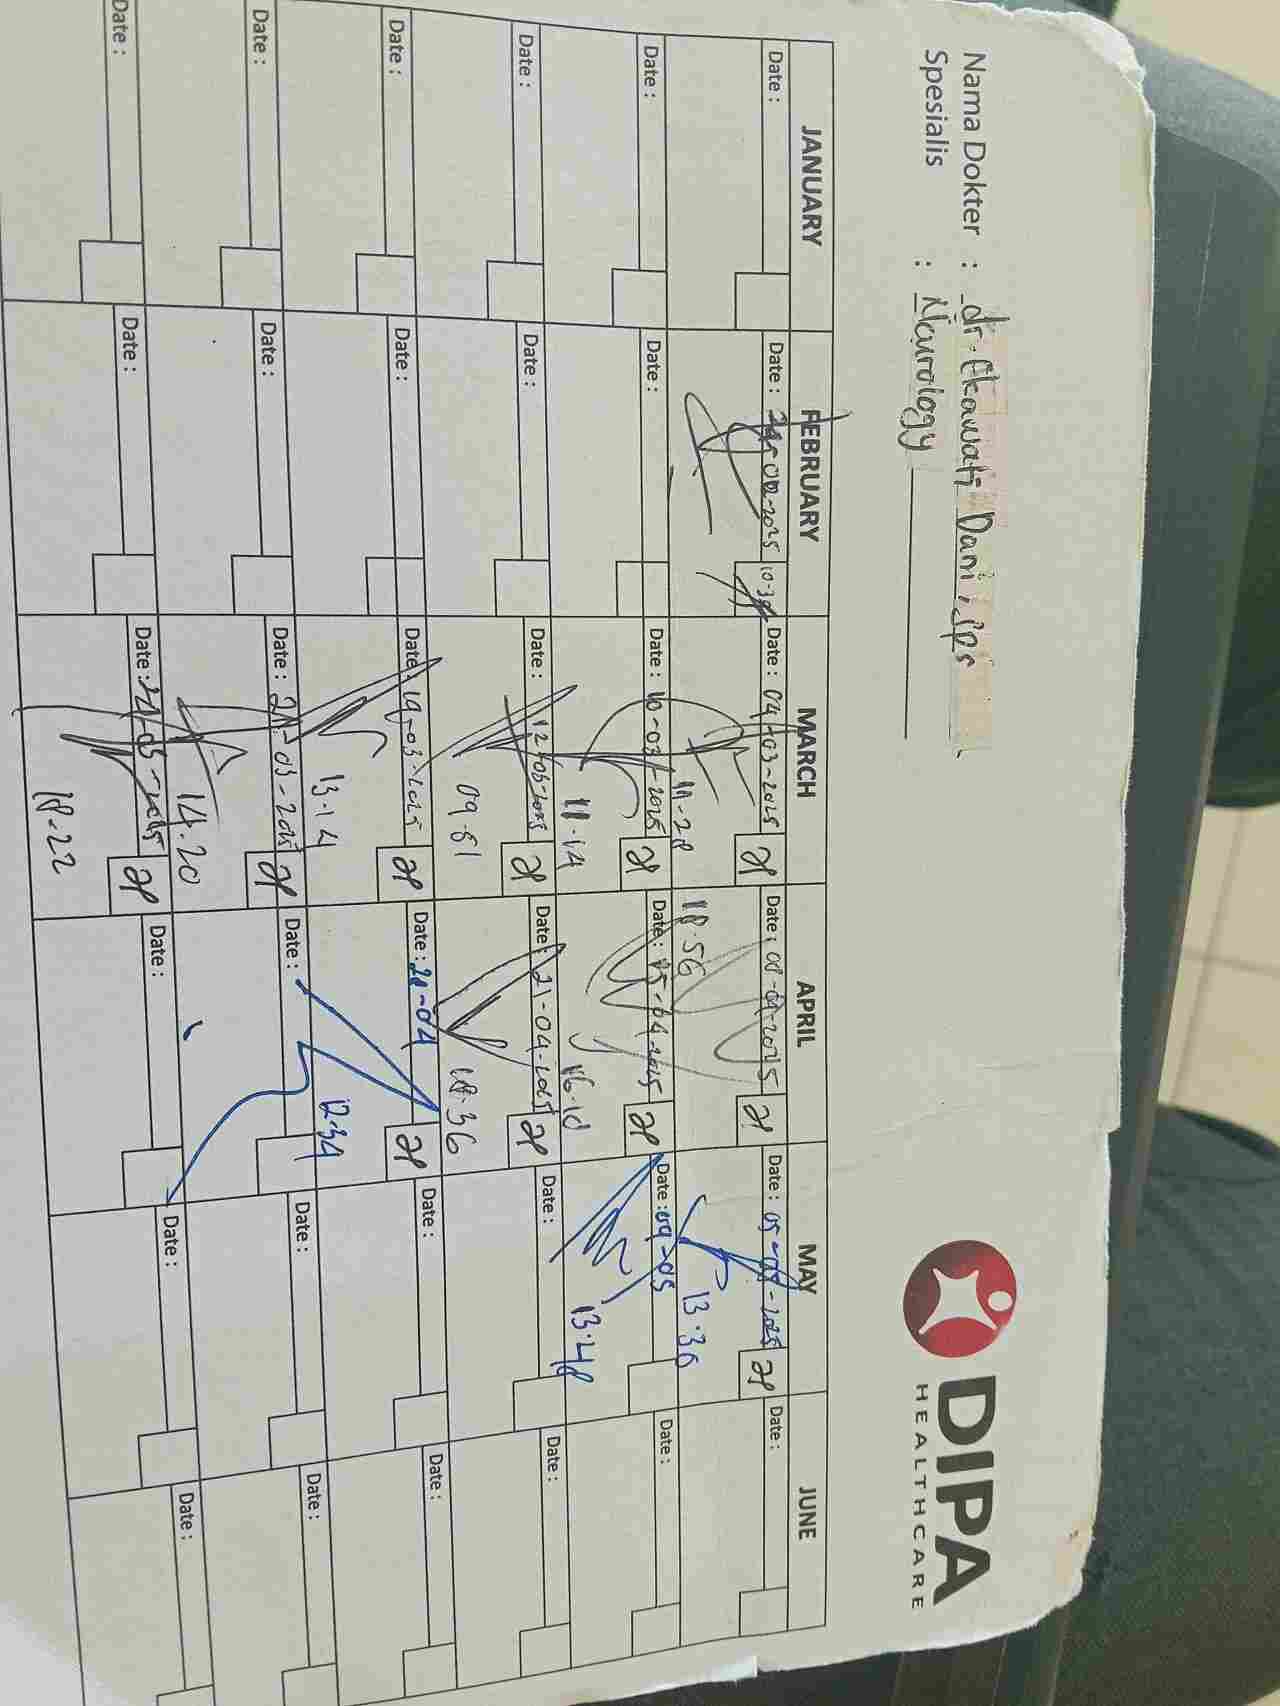 Nama Dokter : dr. Ekawati Dani, Sps
Spesialis : Neurology
DIPA
HEALTHCARE
JANUARY FEBRUARY MARCH APRIL MAY JUNE
Date : Date : 02-2025 10-3 Date : 04-03-2025 Date : 08-04-2025 Date : 05-05-2025 Date :
11-28 18.56 13.36
Date : Date : Date : 10-03-2025 Date : 15-04-2025 Date : 09-05 Date :
11.14 16.18 13.48
Date : Date : Date : 12-03-2025 Date : 21-04-2025 Date : Date :
09.51 18.36
Date : Date : Date : 19-03-2025 Date : 28-04 Date : Date :
13.14 12.34
Date : Date : Date : 21-03-2025 Date : Date : Date :
14.20
Date : Date : Date : 24-03-2025 Date : Date : Date :
18.22